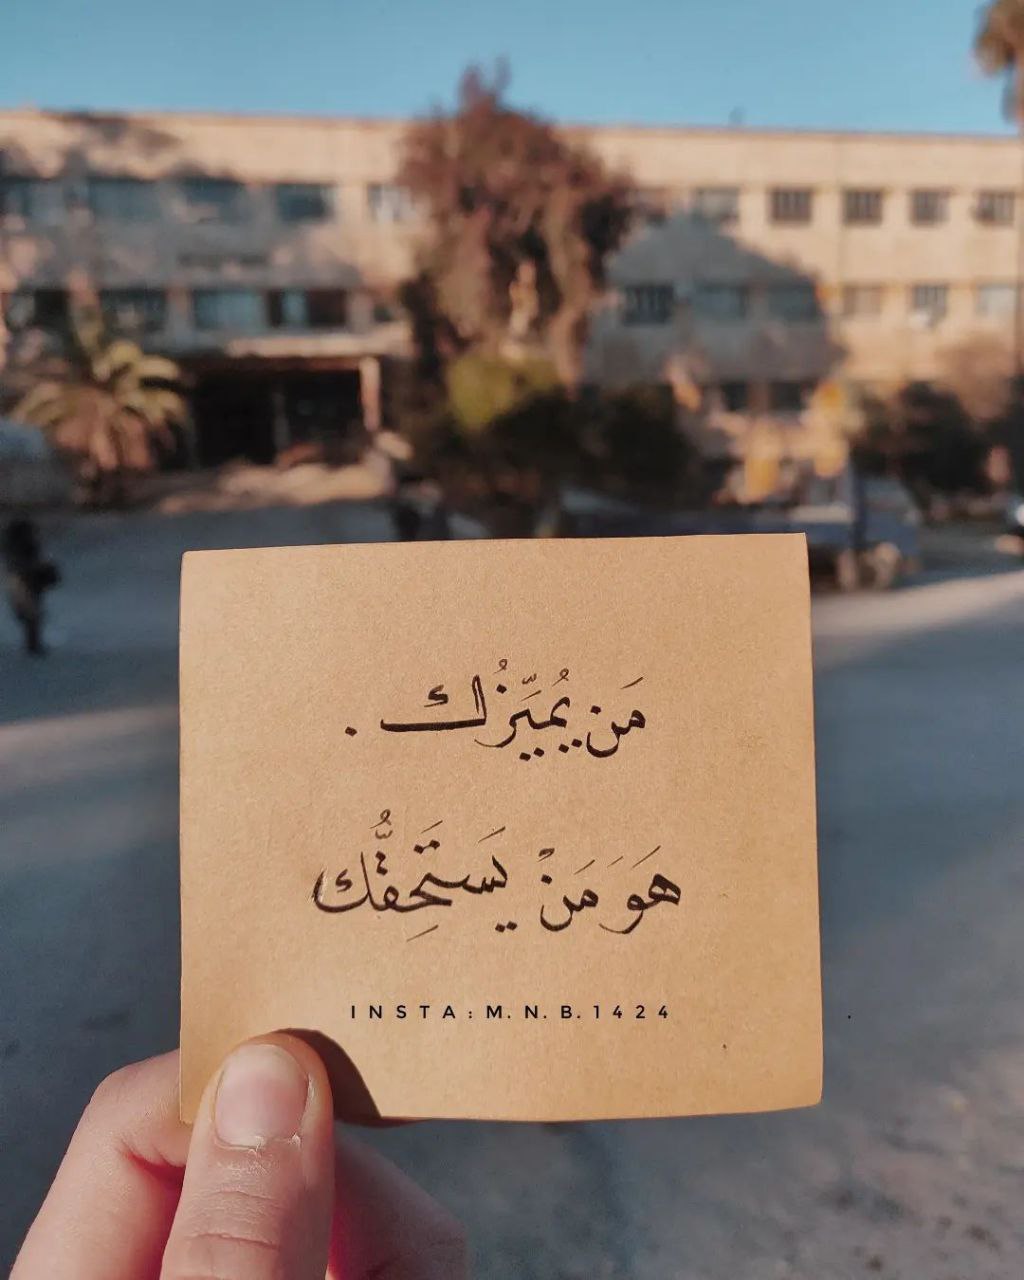 مَن يُمَيِّزُك .
هَوَ مَنْ يَستَحِقُّك
INSTA:M.N.B.1424